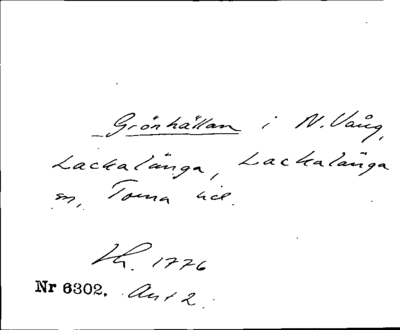 Grönkällan i N. Vång,
Lackalänga, Lackalänga
sn, Torna hd.
Kh. 1776
Nr 6302. Ant 2.